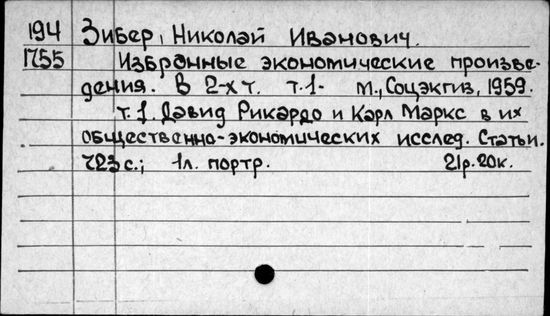 194 Зибер, Николай Иванович.
1755 Избранные экономические произве-
дения. В 2-х т. т.1- М., Соцэкгиз, 1959.
т.1. Давид Рикардо и Карл Маркс в их
общественно-экономических исслед. Статьи.
723 с.; 1л. портр. 21р.20к.